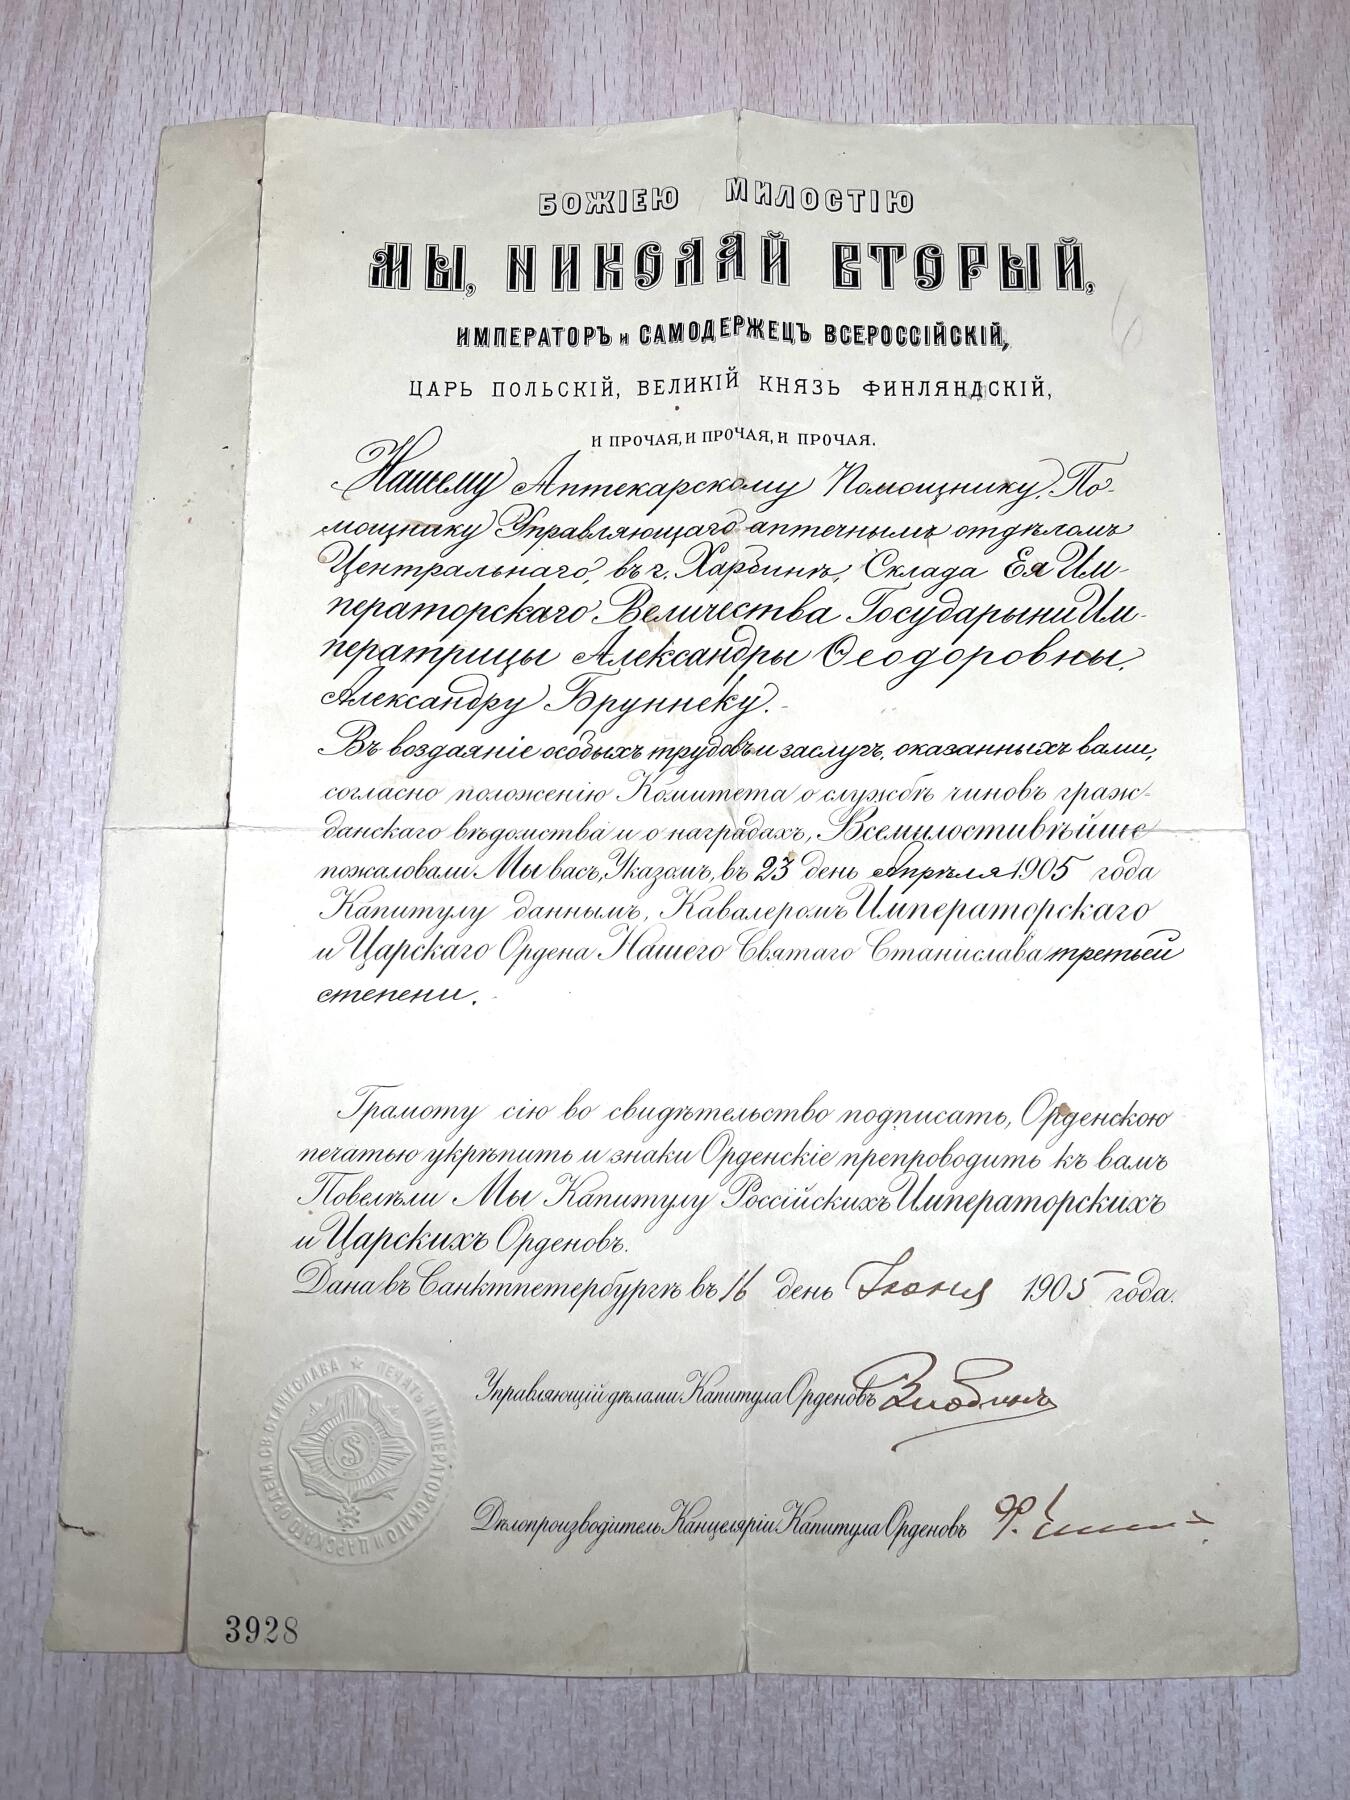 БОЖІЕЮ МИЛОСТІЮ
МЫ, НИКОЛАЙ ВТОРЫЙ,
ИМПЕРАТОРЪ и САМОДЕРЖЕЦЪ ВСЕРОССІЙСКІЙ,
ЦАРЬ ПОЛЬСКІЙ, ВЕЛИКІЙ КНЯЗЬ ФИНЛЯНДСКІЙ,
И ПРОЧАЯ, И ПРОЧАЯ, И ПРОЧАЯ.
6
Нашему Аптекарскому Помощнику, По-
мощнику Управляющаго аптечнымъ отдѣломъ
Центральнаго, въ г. Харбинѣ, Склада Ея Им-
ператорскаго Величества Государыни Им-
ператрицы Александры Ѳеодоровны,
Александру Бруннеку.
Въ воздаяніе особыхъ трудовъ и заслугъ, оказанныхъ вами,
согласно положенію Комитета о службѣ чиновъ граж-
данскаго вѣдомства и о наградахъ, Всемилостивѣйше
пожаловали Мы васъ, Указомъ, въ 23 день Апрѣля 1905 года
Капитулу даннымъ, Кавалеромъ Императорскаго
и Царскаго Ордена Нашего Святаго Станислава третьей
степени.
Грамоту сію во свидѣтельство подписать, Орденскою
печатью укрѣпить и знаки Орденскіе препроводить къ вамъ
Повелѣли Мы Капитулу Россійскихъ Императорскихъ
и Царскихъ Орденовъ.
Дана въ Санктпетербургѣ въ 16 день Іюня 1905 года.
Управляющій дѣлами Капитула Орденовъ
Дѣлопроизводитель Канцеляріи Капитула Орденовъ
ПЕЧАТЬ ИМПЕРАТОРСКАГО И ЦАРСКАГО ОРДЕНА СВ СТАНИСЛАВА
3928